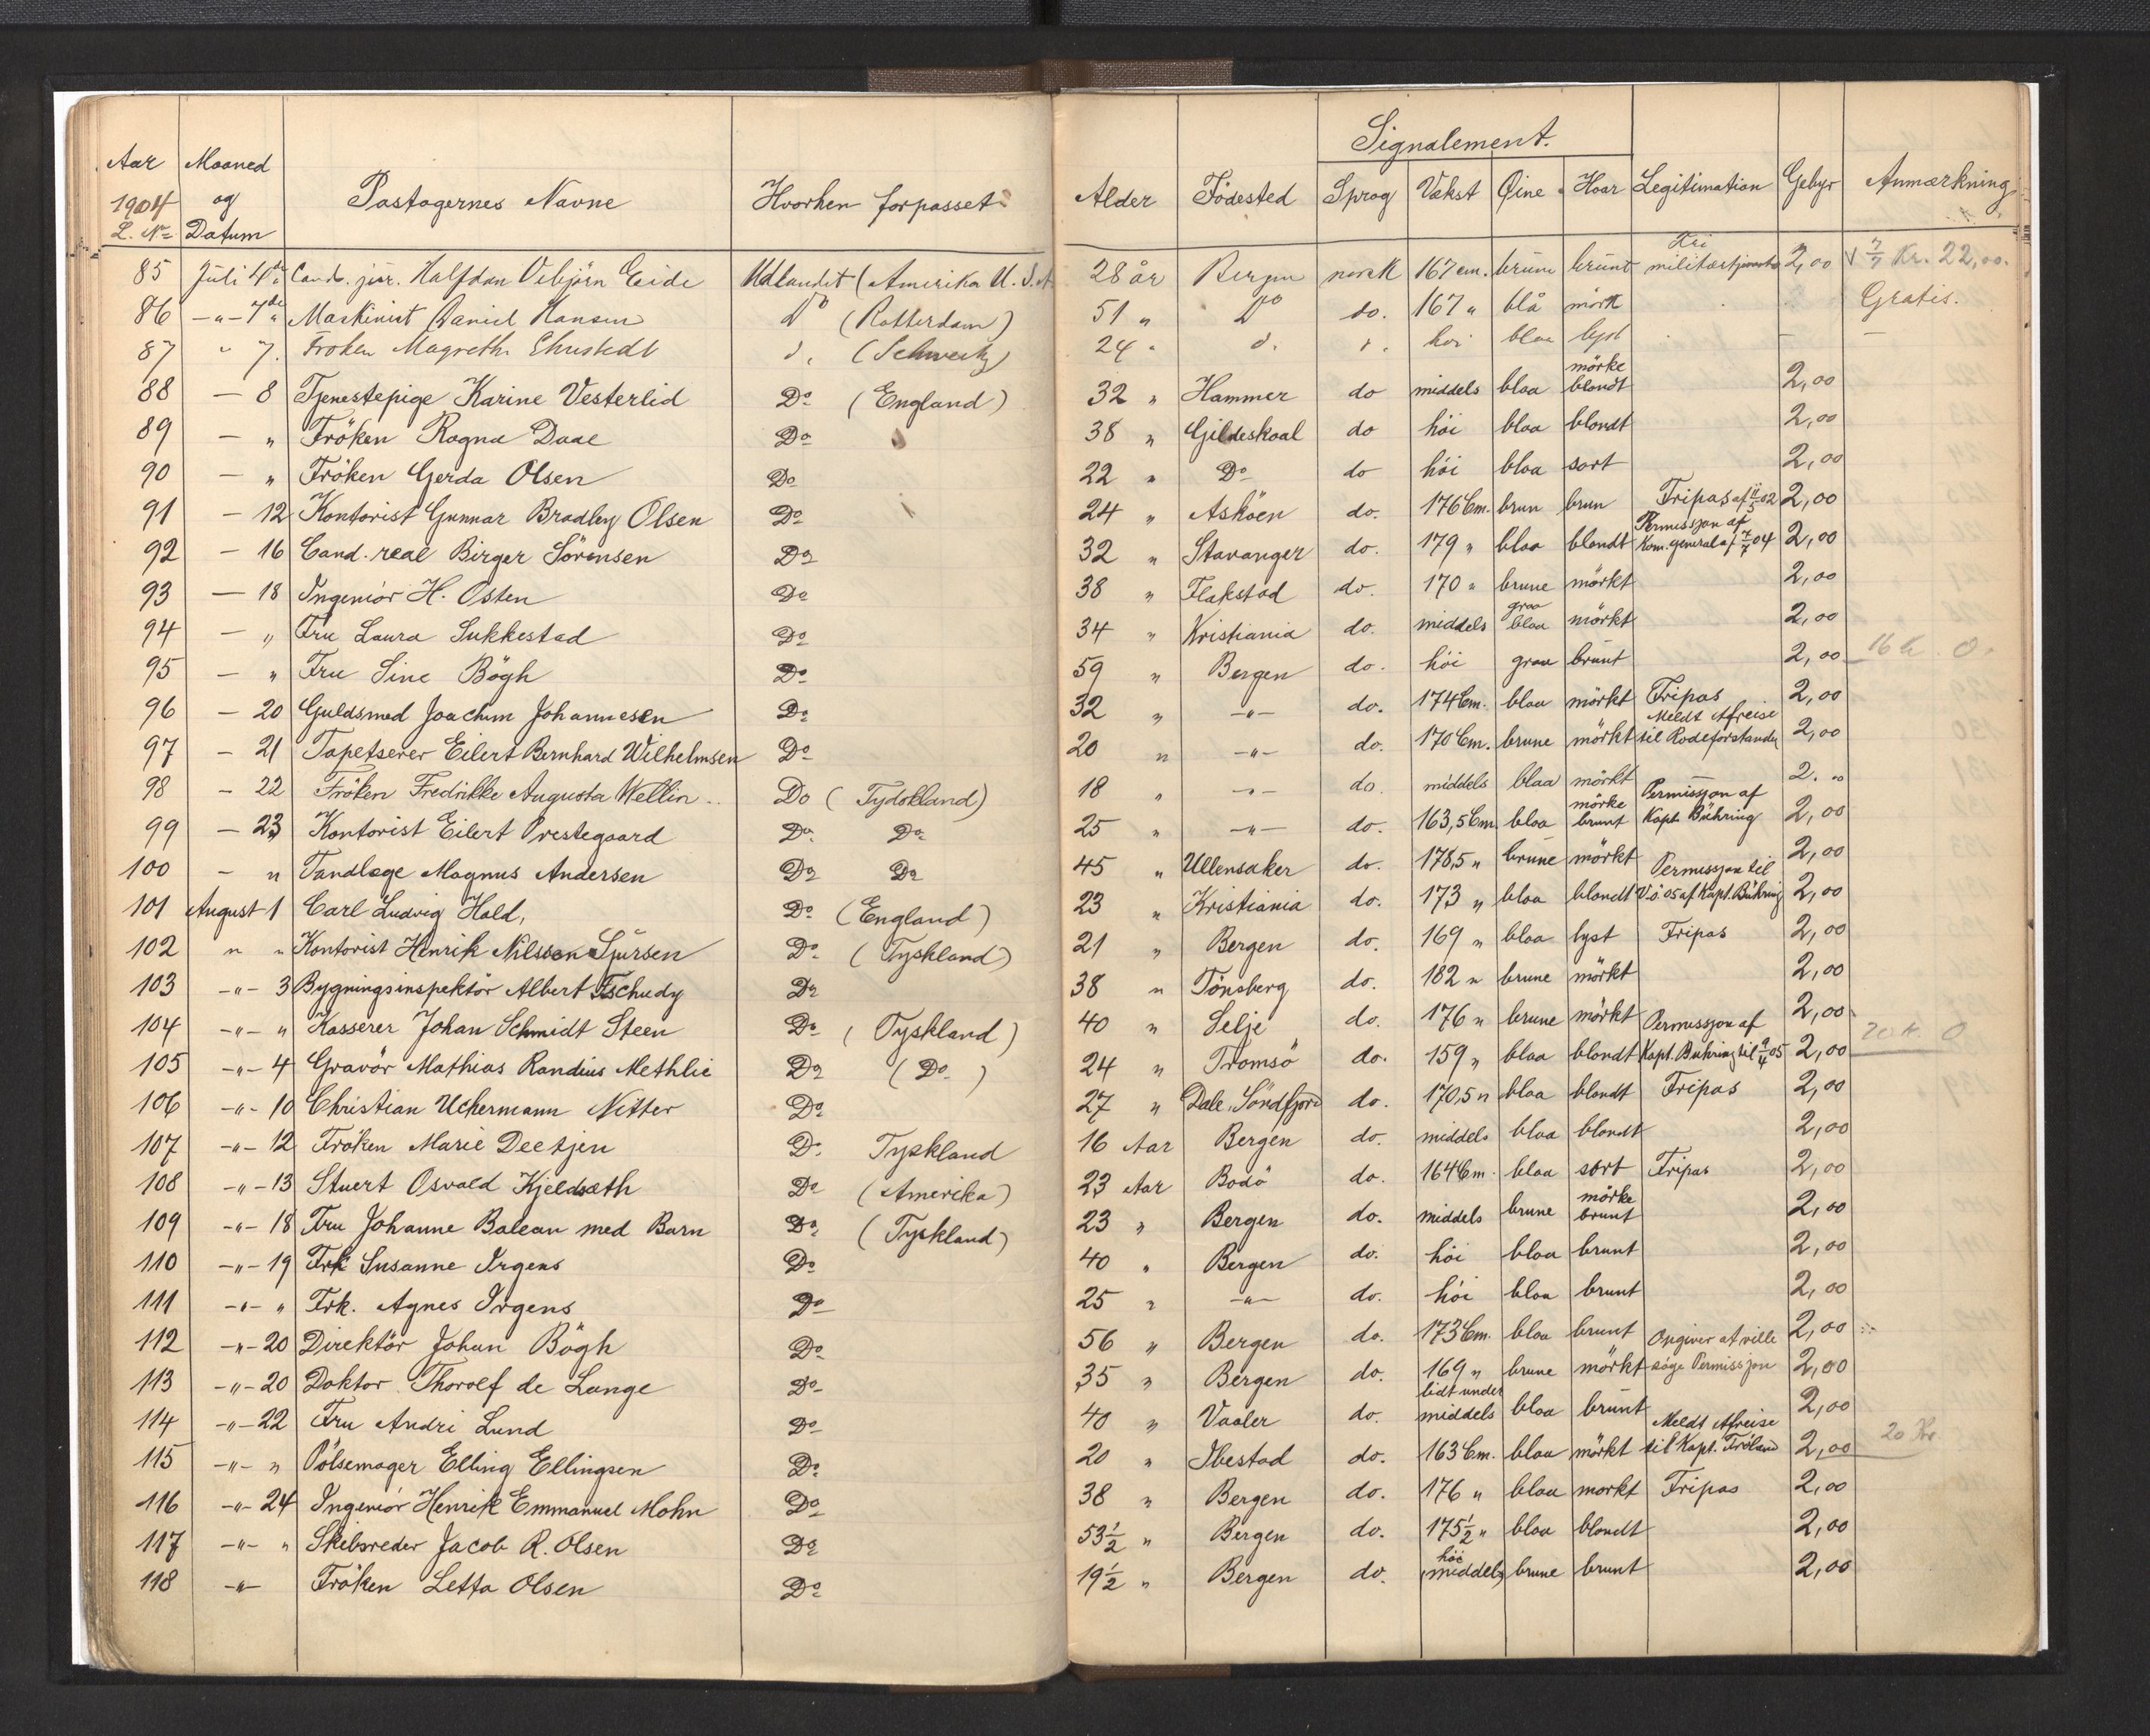 Aar 1904 L. No | Maaned og Datum | Pastagernes Navne | Hvorhen forpasset | Alder | Födested | Signalement. Sprog | Vækst | Øine | Haar | Legitimation | Gebyr | Anmærkning
85 | Juli 4de | Cand. jur. Halfdan Vibjörn Eide | Udlandet (Amerika U. S. A. | 28 år | Bergen | norsk | 167 cm. | brune | brunt | Fri militærtjeneste | 2,00 | V 7/7 Kr. 22,00.
86 | -"- 7de | Maskinist Daniel Hansen | Do (Rotterdam) | 51 " | Do | do. | 167 " | blå | mörk | | | Gratis.
87 | " 7. | Fröken Magrethe | d. (Schweitz) | 24 " | d. | d. | høi | blaa | lyst | | — | —
88 | — 8 | Tjenestepige Karine Vesterlid | Do (England) | 32 " | Hammer | do | middels | blaa | mörke blondt | | 2,00
89 | — " | Fröken Ragna Daae | Do | 38 " | Gildeskaal | do | höi | blaa | blondt | | 2,00
90 | — " | Fröken Gerda Olsen | Do | 22 " | Do | do | höi | blaa | sort | | 2,00
91 | — 12 | Kontorist Gunnar Bradley Olsen | Do | 24 " | Asköen | do. | 176 Cm. | brun | brun | Fripas af 11/3 02 | 2,00
92 | — 16 | Cand. real Birger Sörensen | Do | 32 " | Stavanger | do. | 179 " | blaa | blondt | Permissjon af Kom. general af 7/7 04 | 2,00
93 | — 18 | Ingeniör H. Osten | Do | 38 " | Flakstad | do. | 170 " | brune | mörkt | | 2,00
94 | — " | Fru Laura Sukkestad | Do | 34 " | Kristiania | do. | middels | graa blaa | mörkt | | 2,00
95 | — " | Fru Sine Bögh | Do | 59 " | Bergen | do. | höi | graa | brunt | | 2,00 | 16 k. 0.
96 | — 20 | Guldsmed Joachim Johannesen | Do | 32 " | -"- | do. | 174 Cm. | blaa | mörkt | Fripas | 2,00
97 | — 21 | Tapetserer Eilert Bernhard Wilhelmsen | Do | 20 " | -"- | do. | 170 Cm. | brune | mörkt | Meldt Afreise til Rodeforstander | 2,00
98 | — 22 | Fröken Fredrikke Augusta Wellin.. | Do (Tydskland) | 18 " | -"- | do. | middels | blaa | mörkt | | 2. "
99 | — 23 | Kontorist Eilert Prestegaard | Do Do | 25 " | -"- | do. | 163,5 Cm. | blaa | mörke brunt | Permissjon af Kapt Bühring | 2,00
100 | — " | Tandlæge Magnus Andersen | Do Do | 45 " | Ullensaker | do. | 178,5 " | brune | mörkt | | 2,00
101 | August 1 | Carl Ludvig Hald, | Do (England) | 23 " | Kristiania | do. | 173 " | blaa | blondt | Permissjon til V.ö. 05 af Kapt. Bühring | 2,00
102 | " " | Kontorist Henrik Nilssen Sjursen | Do (Tyskland) | 21 " | Bergen | do. | 169 " | blaa | lyst | Fripas | 2,00
103 | -"- 3 | Bygningsinspektör Albert Tschudy | Do | 38 " | Tönsberg | do. | 182 " | brune | mörkt | | 2,00
104 | -"- " | Kasserer Johan Schmidt Steen | Do (Tyskland) | 40 " | Selje | do. | 176 " | brune | mörkt | | 2,00
105 | -"- 4 | Gravör Mathias Randius Methlie | Do (Do) | 24 " | Tromsö | do. | 159 " | blaa | blondt | Permissjon af Kapt. Bühring til 9/4 05 | 2,00 | 20 k. 0
106 | -"- 10 | Christian Uchermann Nitter | Do | 27 " | Dale, Söndfjord | do. | 170,5 " | blaa | blondt | Fripas | 2,00
107 | -"- 12 | Fröken Marie Deetjen | Do Tyskland | 16 Aar | Bergen | do. | middels | blaa | blondt | | 2,00
108 | -"- 13 | Stuert Osvald Kjeldsæth | Do (Amerika) | 23 Aar | Bodö | do. | 164 Cm. | blaa | sort | Fripas | 2,00
109 | -"- 18 | Fru Johanne Balean med Barn | Do (Tyskland) | 23 " | Bergen | do. | middels | brune | mörke brunt | | 2,00
110 | -"- 19 | Frk Susanne Irgens | Do | 40 " | Bergen | do. | höi | blaa | brunt | | 2,00
111 | -"- " | Frk. Agnes Irgens | Do | 25 " | -"- | do. | höi | blaa | brunt | | 2,00
112 | -"- 20 | Direktör Johan Bögh | Do | 56 " | Bergen | do. | 173 Cm. | blaa | brunt | | 2,00
113 | -"- 20 | Doktor Thorolf de Lange | Do | 35 " | Bergen | do. | 169 " | brune | mörkt | Opgiver at ville söge Permissjon | 2,00
114 | -"- 22 | Fru Andri Lund | Do | 40 " | Vaaler | do. | lidt under middels | blaa | brunt | | 2,00
115 | -"- " | Pölsemager Elling Ellingsen | Do | 20 " | Ibestad | do. | 163 Cm. | blaa | mörkt | Meldt Afreise til Kapt. Fröland | 2,00 | 20 Kr
116 | -"- 24 | Ingeniör Henrik Emmanuel Mohn | Do | 38 " | Bergen | do. | 176 " | blaa | morkt | Fripas | 2,00
117 | -"- " | Skibsreder Jacob R. Olsen | Do | 53 1/2 " | Bergen | do. | 175 1/2 " | blaa | blondt | | 2,00
118 | -"- | Fröken Letta Olsen | Do | 19 1/2 " | Bergen | do. | höi (middels) | brune | brunt | | 2,00